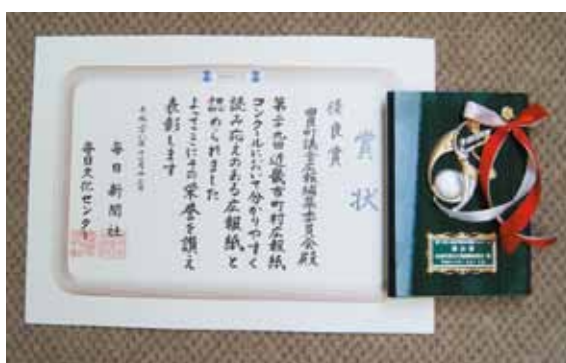 賞状
優良賞
町議会広報編集委員会殿
第十九回近畿市町村広報紙
コンクールにおいて分かりやすく
読み応えのある広報紙と
認められました
よってここにその栄誉を讃え
表彰します
毎日新聞社
毎日文化センター